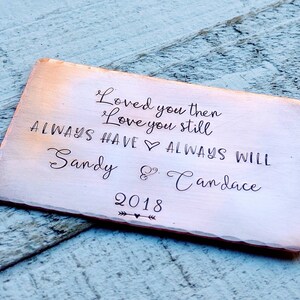 Loved you then
Love you still
ALWAYS HAVE ♡ ALWAYS WILL
Sandy & Candace
2018